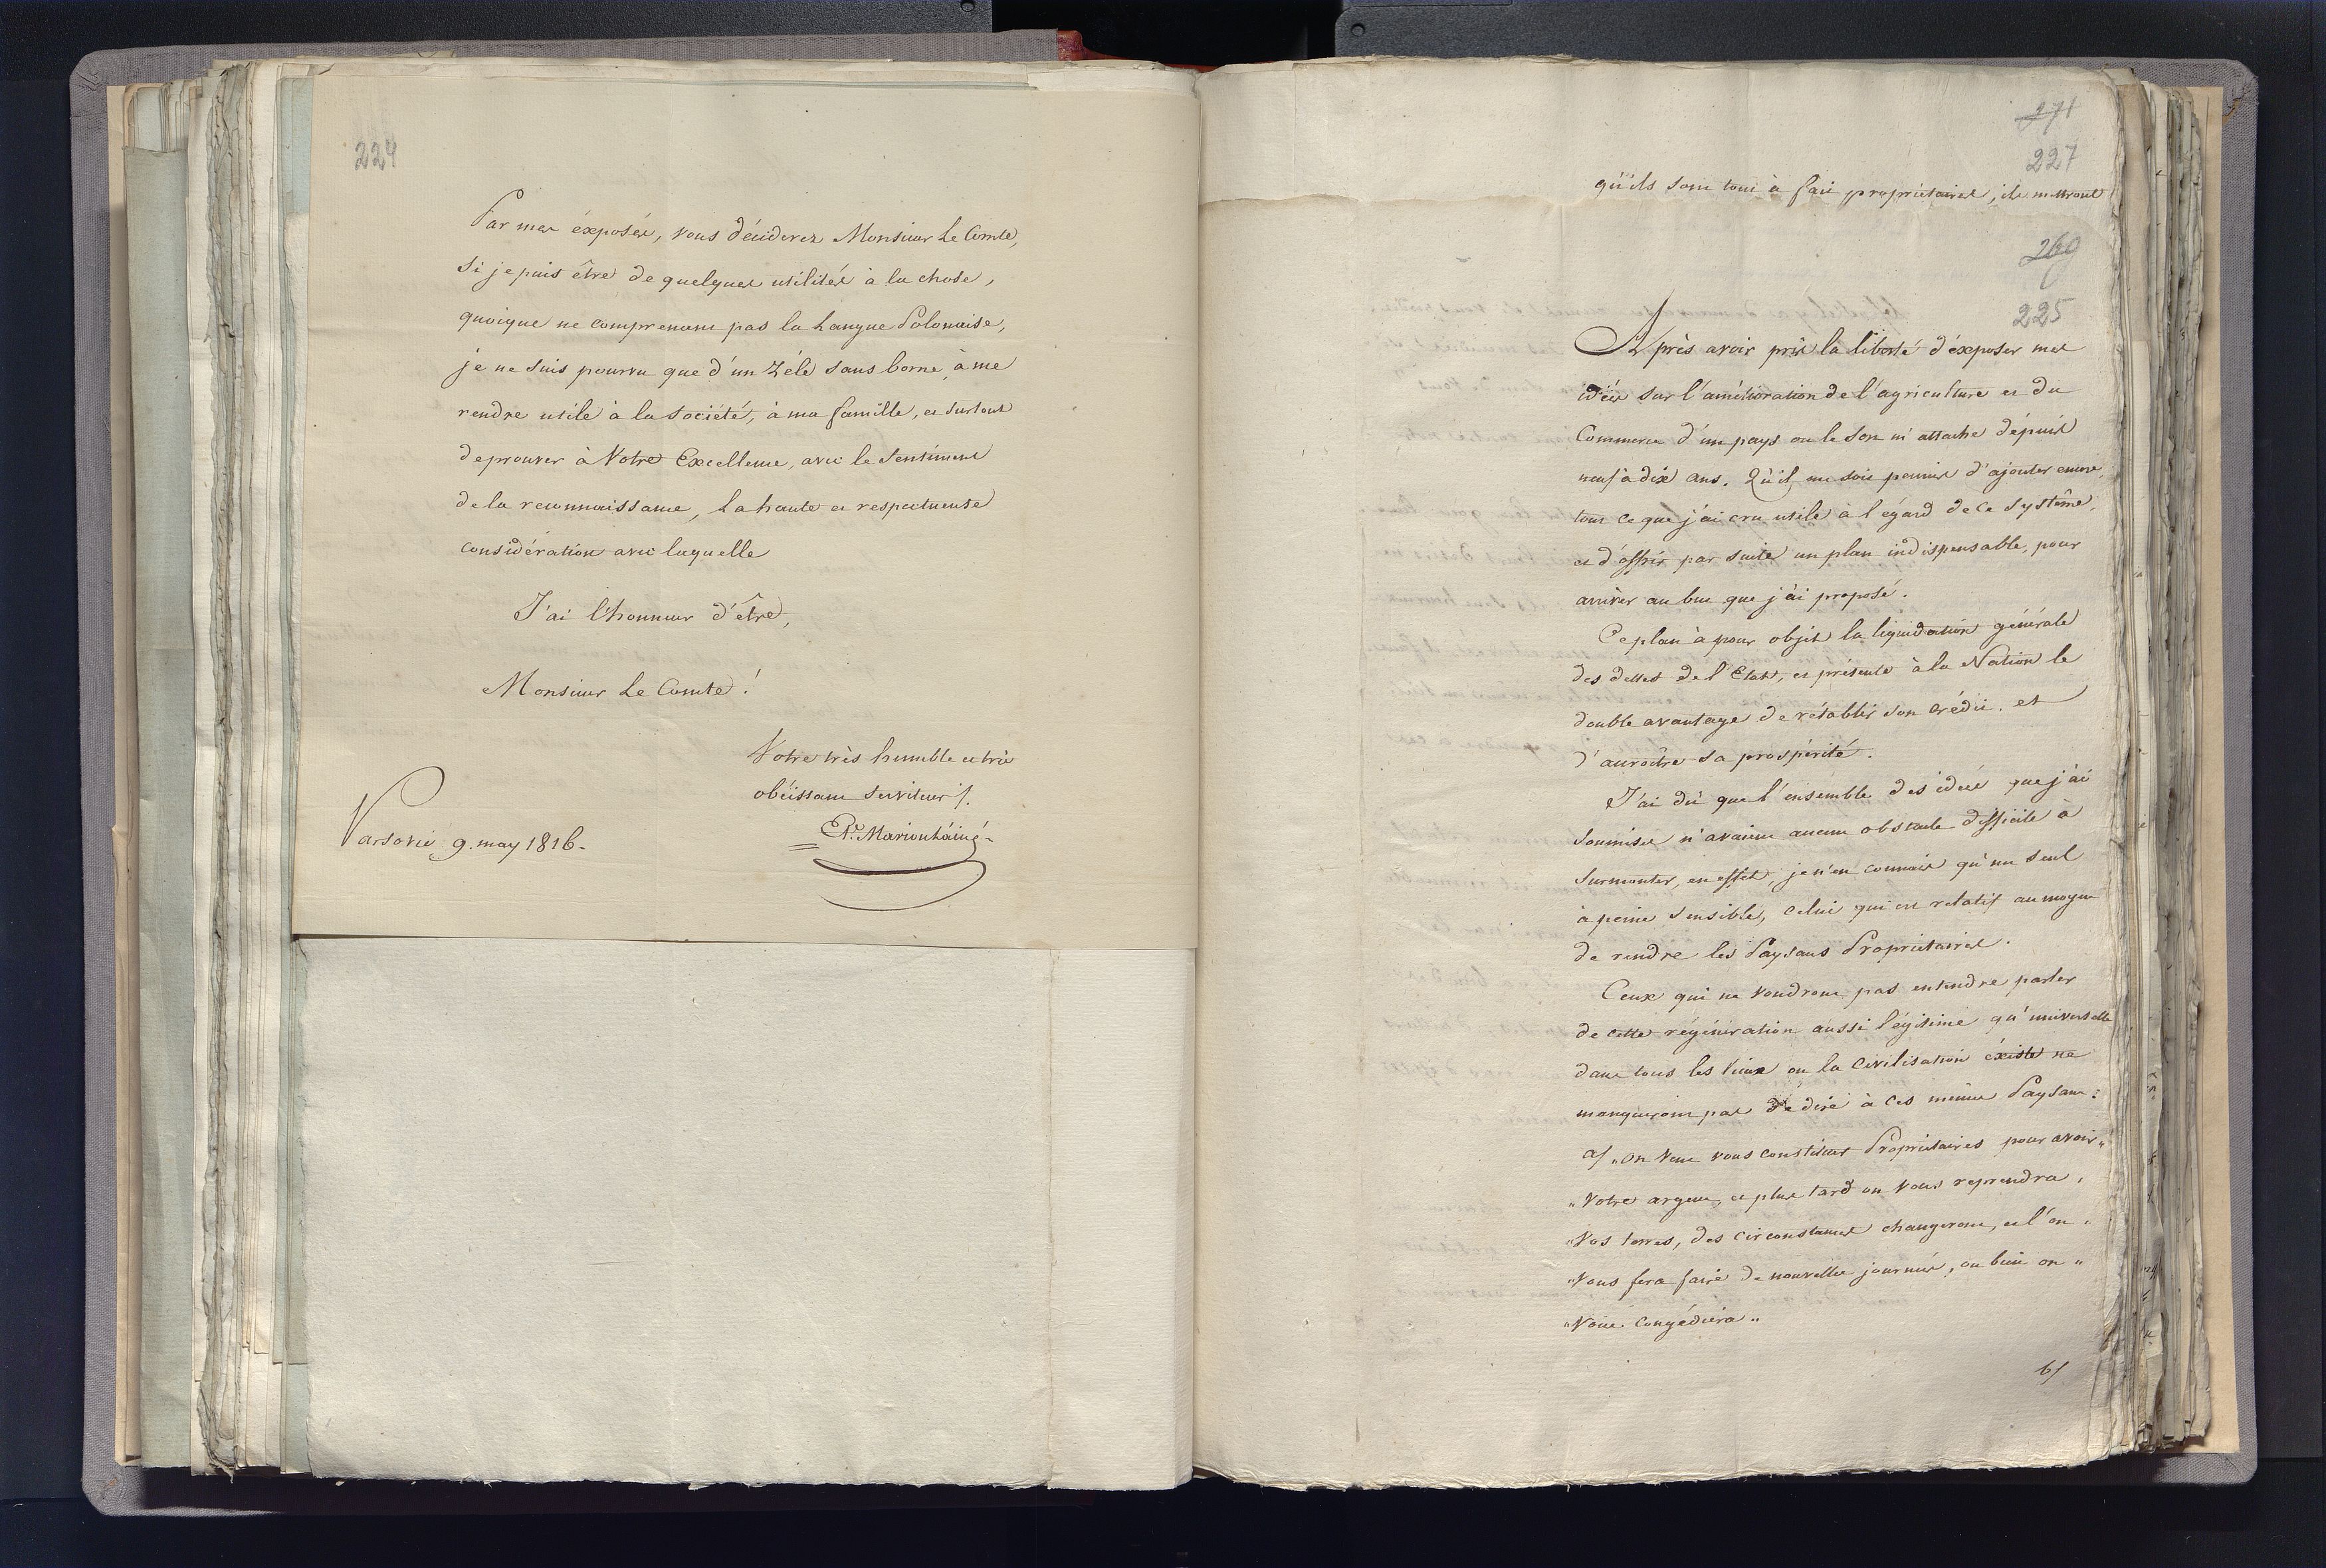 224
Par mes éxposés, vous déciderez Monsieur Le Comte,
Si je puis être de quelques utilités à la chose,
quoique ne comprenant pas la Langue Polonaise,
je ne suis pourvu que d'un Zéle sans borne, à me
rendre utile à la Société, à ma famille, et surtout
de prouver à Votre Excellence, avec le Sentiment
de la reconnaissance, La haute et respectueuse
considération avec laquelle
J'ai l'honneur d'être,
Monsieur Le Comte!
Votre très humble et très
obéissant Serviteur /.
Varsovie 9. may 1816.
271
227
qu'ils sont tout à fait propriétaires, ils mettront
269
225
Après avoir pris la liberté d'éxposer mes
idées sur l'amélioration de l'agriculture et du
Commerce d'un pays ou le Son m'attache dépuis
neuf à dix ans. Qu'il me soit permis d'ajouter encore,
tout ce que j'ai cru utile à l'égard de ce Systême,
et d'offrir par suite un plan indispensable, pour
arriver au but que j'ai proposé.
Ce plan à pour objet la liquidation générale
des dettes de l'Etat, et présente à la Nation le
double avantage de rétablir son crédit, et
d'accroître sa prospérité.
J'ai dit que l'ensemble des idées que j'ai
Soumises n'avaient aucun obstacle difficile à
Surmonter, en effet, je n'en connais qu'un seul
à peine Sensible, Celui qui est relatif au moyen
de rendre les Paysans Propriétaires.
Ceux qui ne voudront pas entendre parler
de cette régénération aussi légitime qu'universelle
dans tous les lieux ou la Civilisation éxiste ne
manqueront pas de dire à ces mêmes Paysans:
a/ „On Veut vous constituer Propriétaires pour avoir„
„Votre argent, et plus tard on Vous reprendra,
„Vos terres, des circonstances changeront, et l'on„
„Vous fera faire de nouvelles journées, ou bien on„
„Vous Congédiera„
b/